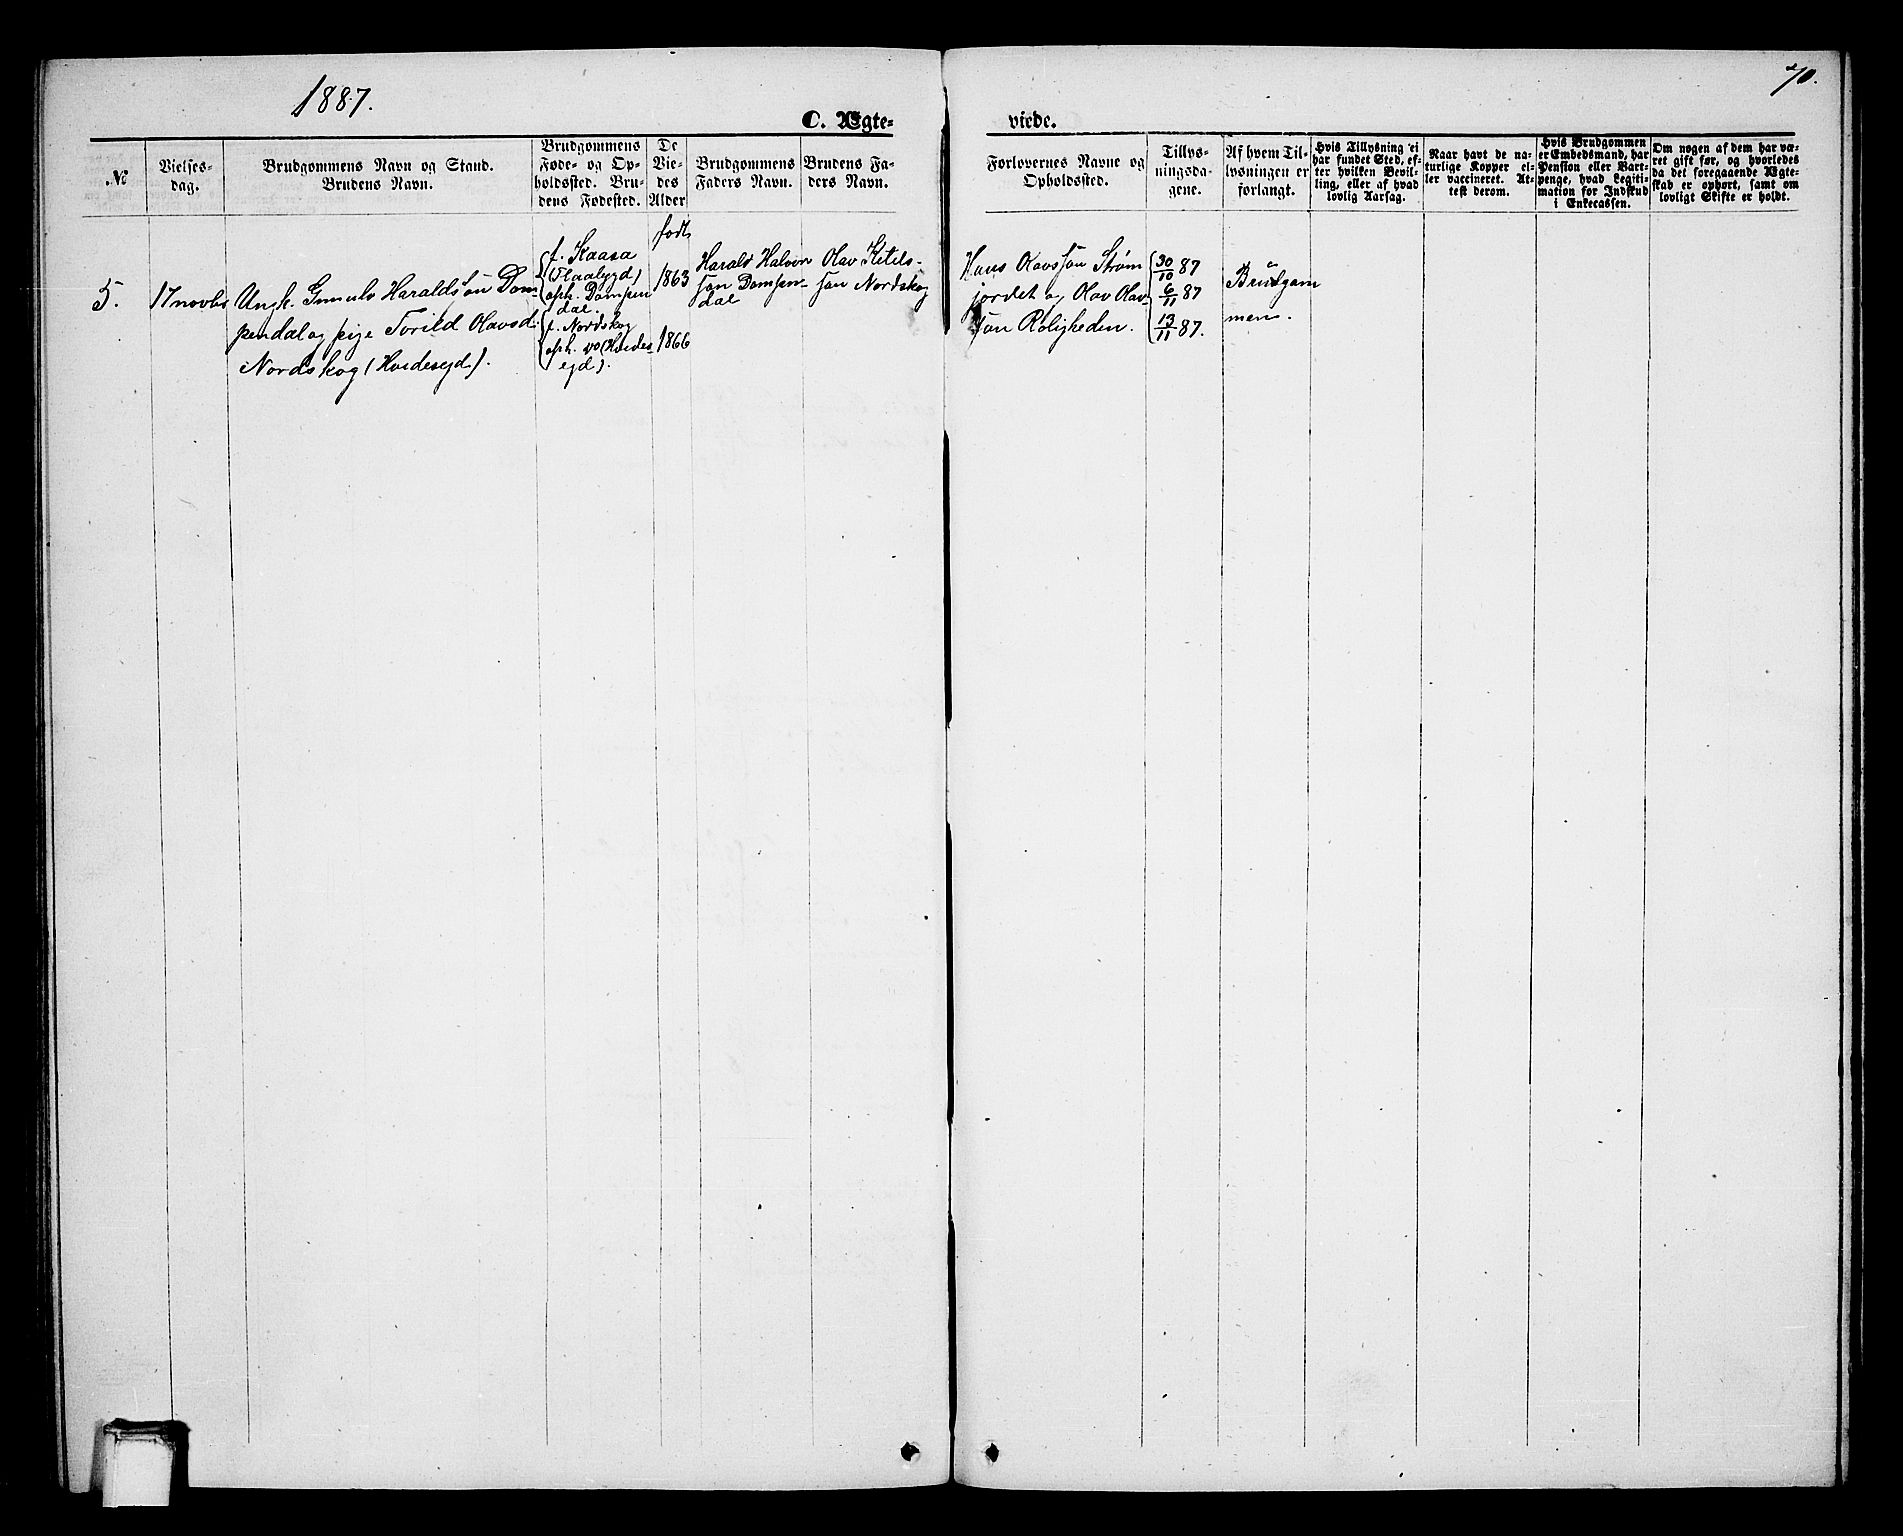 1887.
70.
C. Ægte-
viede.
№
Vielses-
dag.
Brudgommens Navn og Stand.
Brudens Navn.
Brudgommens
Føde- og Op-
holdssted. Bru-
dens Fødested.
De
Vie-
des
Alder
Brudgommens
Faders Navn.
Brudens Fa-
ders Navn.
Forlovernes Navne og
Opholdssted.
Tillys-
ningsda-
gene.
Af hvem Til-
lysningen er
forlangt.
Hvis Tillysning ei
har fundet Sted, ef-
ter hvilken Bevil-
ling, eller af hvad
lovlig Aarsag.
Naar havt de na-
turlige Kopper el-
ler vaccineret. At-
test derom.
Hvis Brudgommen
er Embedsmand, har
Pension eller Vart-
penge, hvad Legiti-
mation for Indskud
i Enkecassen.
Om nogen af dem har væ-
ret gift før, og hvorledes
da det foregaaende Ægte-
skab er ophørt, samt om
lovligt Skifte er holdt.
5.
17 novbr
Ungk. Gunulv Haraldsøn Dom-
pendal og pige Torild Olavsd.
Nordskog (Hvidesejd).
f. Kaasa
(Flaabygd)
oph. Dompen
dal.
f. Nordskog
oph. do (Hvides-
ejd).
født
1863
1866
Harald Halvor
søn Dompen-
dal
Olav Ketils-
søn Nordskog
Hans Olavssøn Strøm
jordet og Olav Olav-
søn Roligheden.
30/10 87
6/11 87
13/11 87.
Brudgom
men.